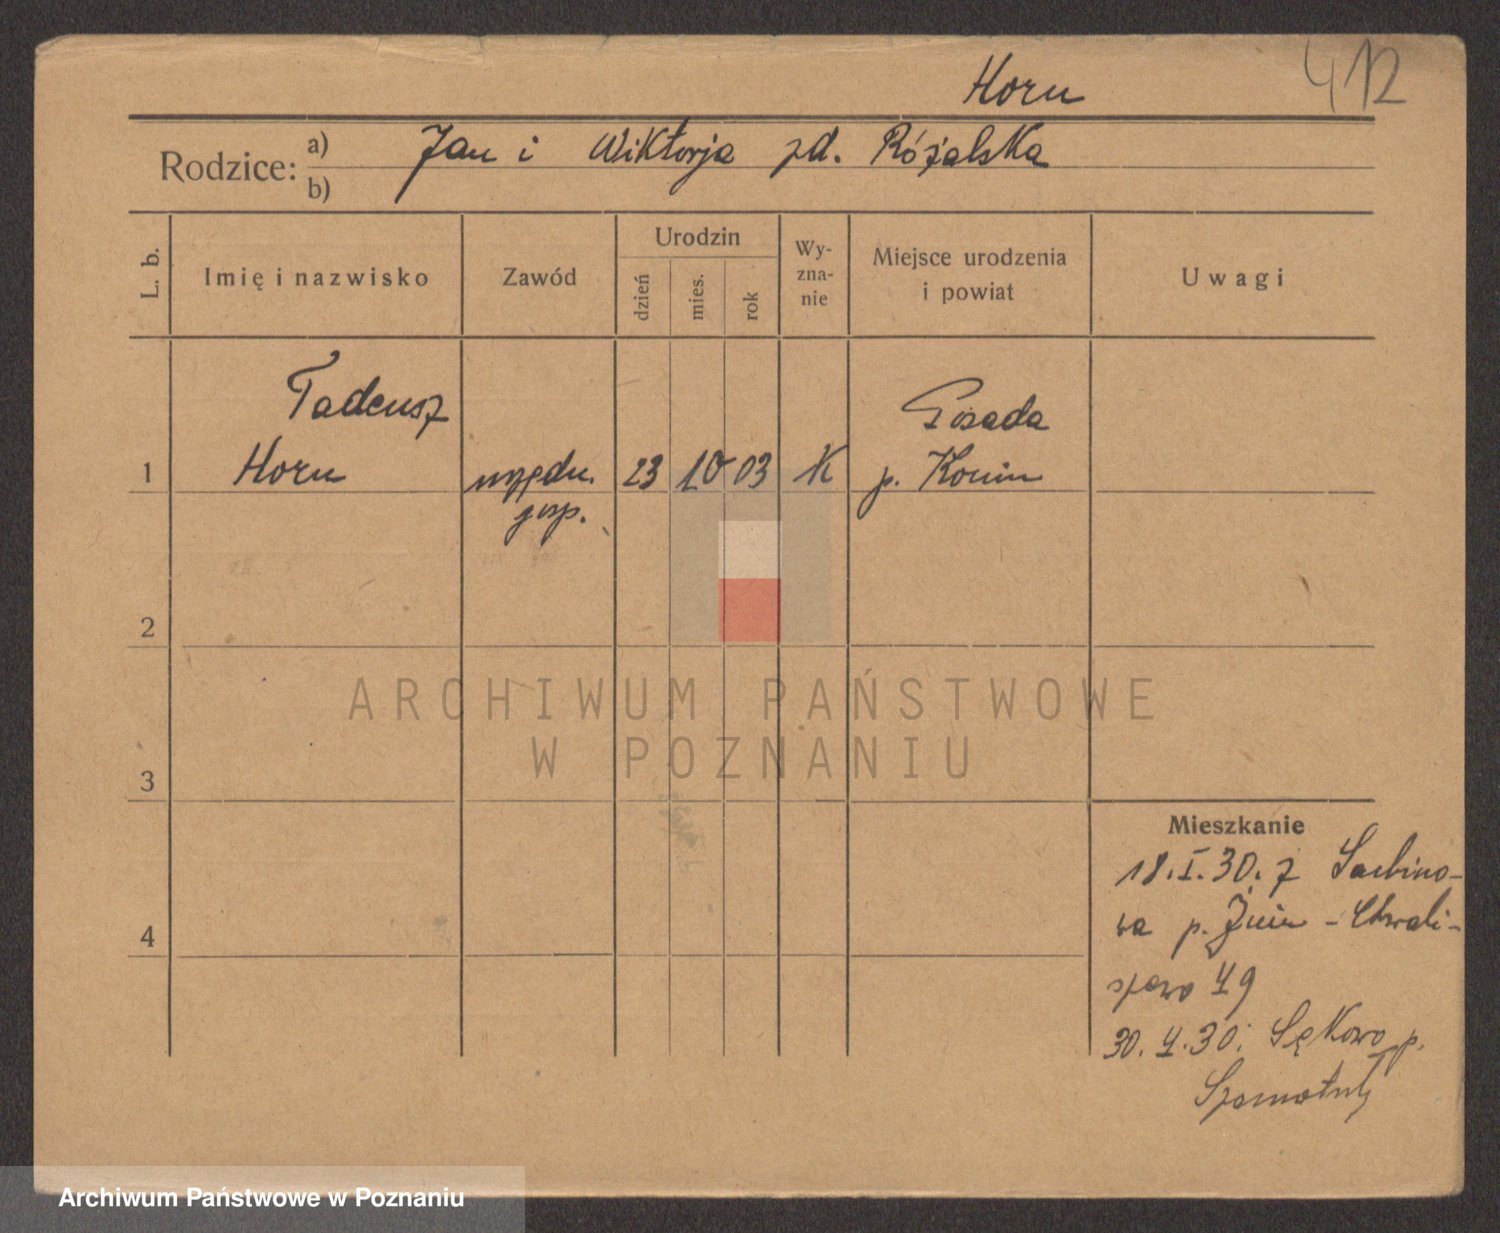 Horn
412
Rodzice: a) Jan i Wiktorja zd. Różalska
b)
L. b.
Imię i nazwisko
Zawód
Urodzin
dzień
mies.
rok
Wy-
zna-
nie
Miejsce urodzenia
i powiat
Uwagi
Tadeusz
Posada
1 Horn urzędn. 23 10 03 K p. Konin
gosp.
2
3
4
Mieszkanie
18.I.30. z Sarbino-
wa p. Żnin - Chwali-
szewo 49
30. 4. 30. Sękowo p.
Szamotuły
ARCHIWUM PAŃSTWOWE
W POZNANIU
Archiwum Państwowe w Poznaniu